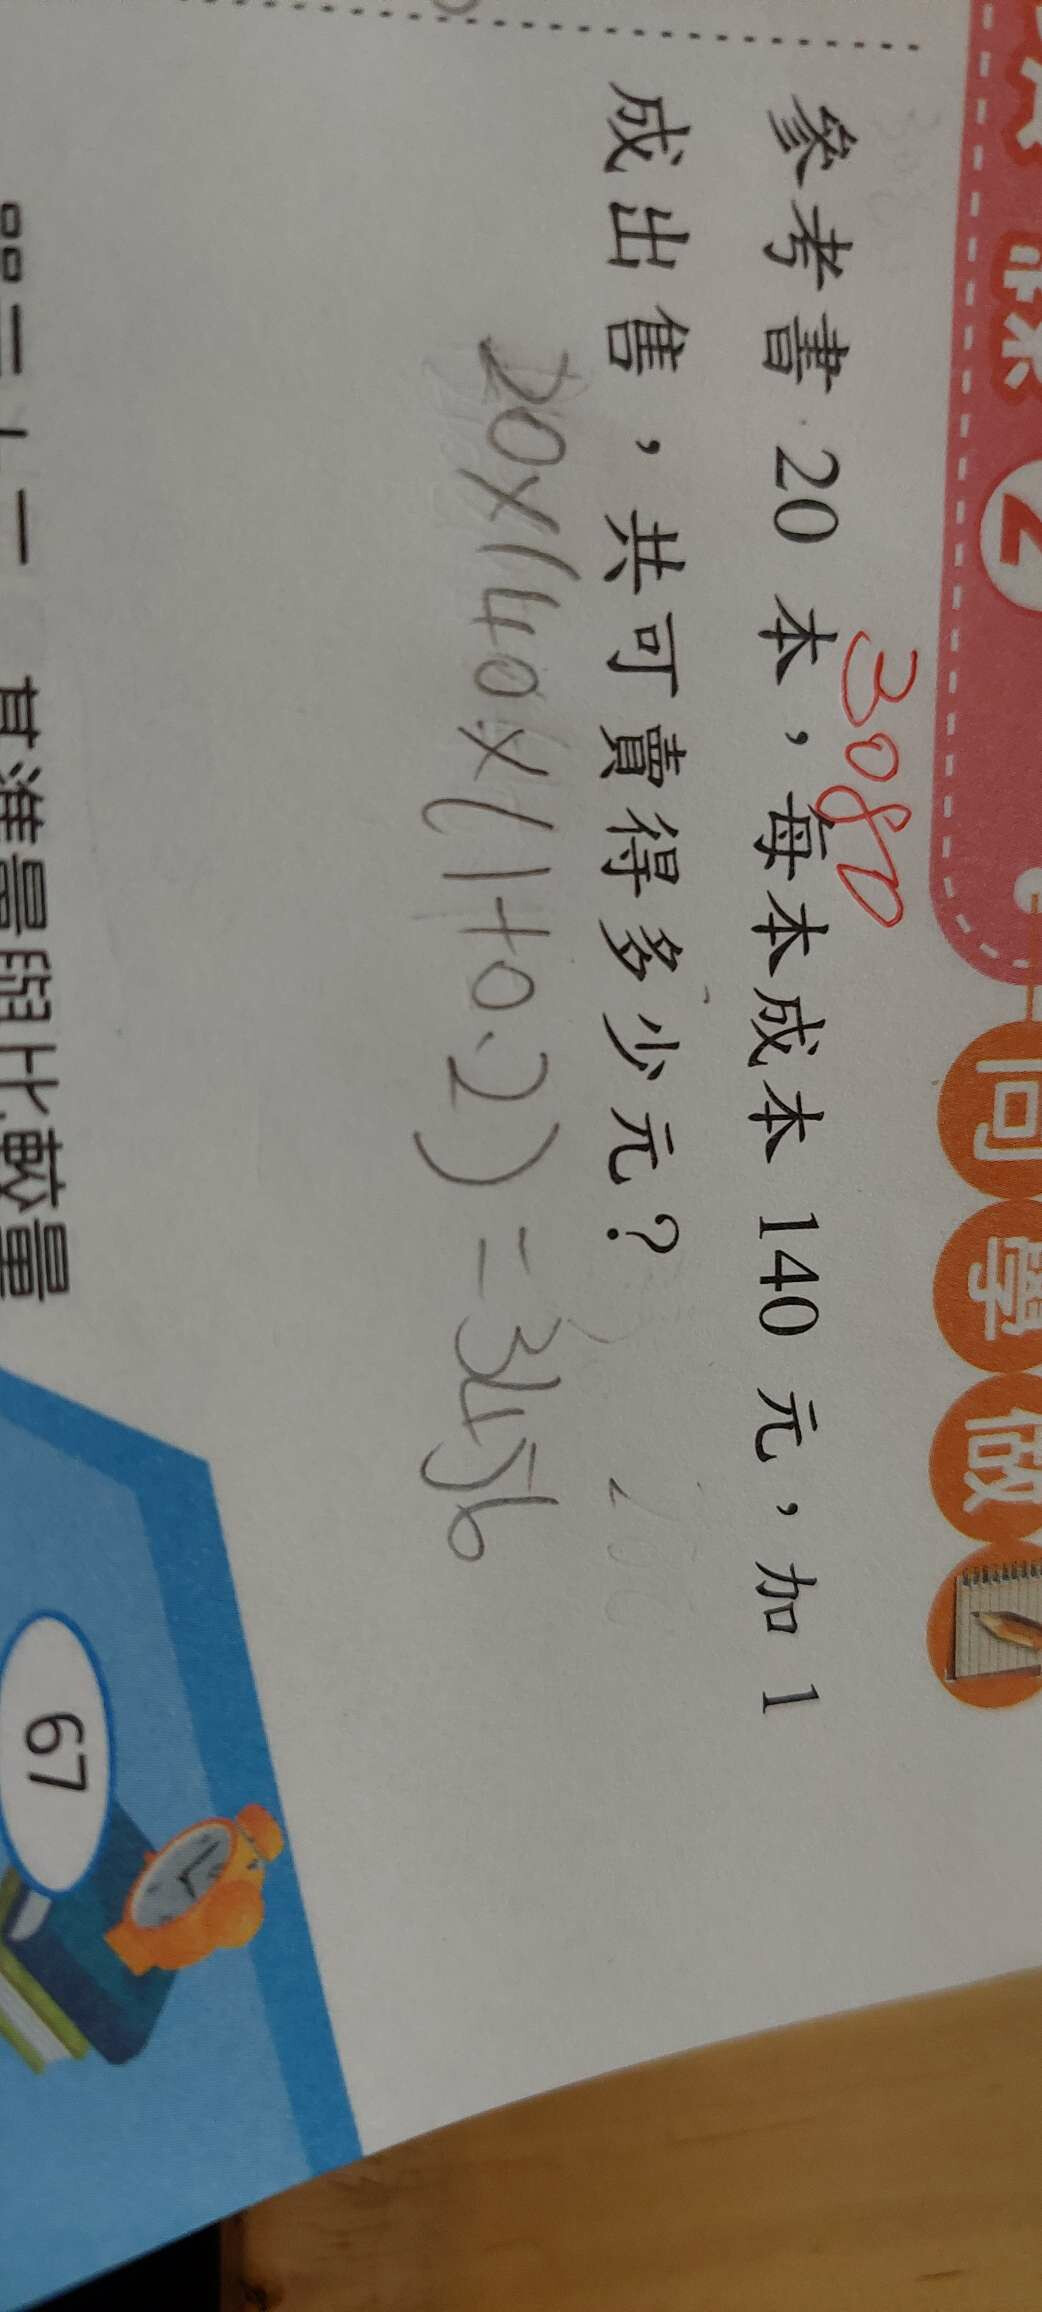 2
同學做
3080
參考書 20 本，每本成本 140 元，加 1
成出售，共可賣得多少元？
20×140×(1+0.2)=3456
基準量與比較量
67